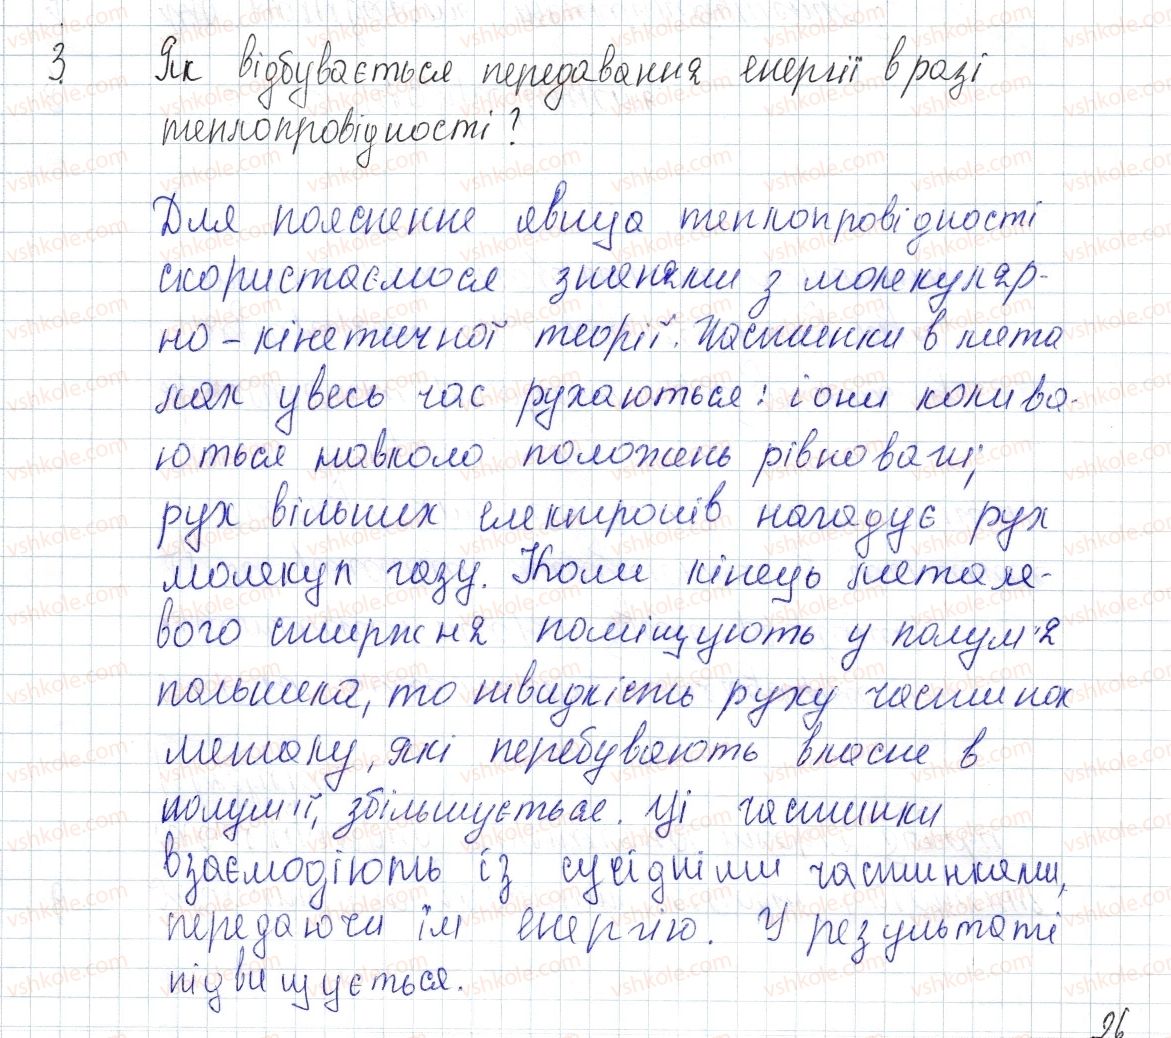 3. Як відбувається передавання енергії в разі
теплопровідності?
Для пояснення явища теплопровідності
скористаємося знанями з молекуляр-
но-кінетичної теорії. Частинки в мета
лах увесь час рухаються: іони колива-
ються навколо положень рівноваги;
рух вільних електронів нагадує рух
молекул газу. Коли кінець метале-
вого стержня поміщують у полум'я
пальника, то швидкість руху частинок
металу, які перебувають власне в
полум'ї, збільшується. Ці частинки
взаємодіють із сусідніми частинками,
передаючи їм енергію. У результаті
підвищується.
26